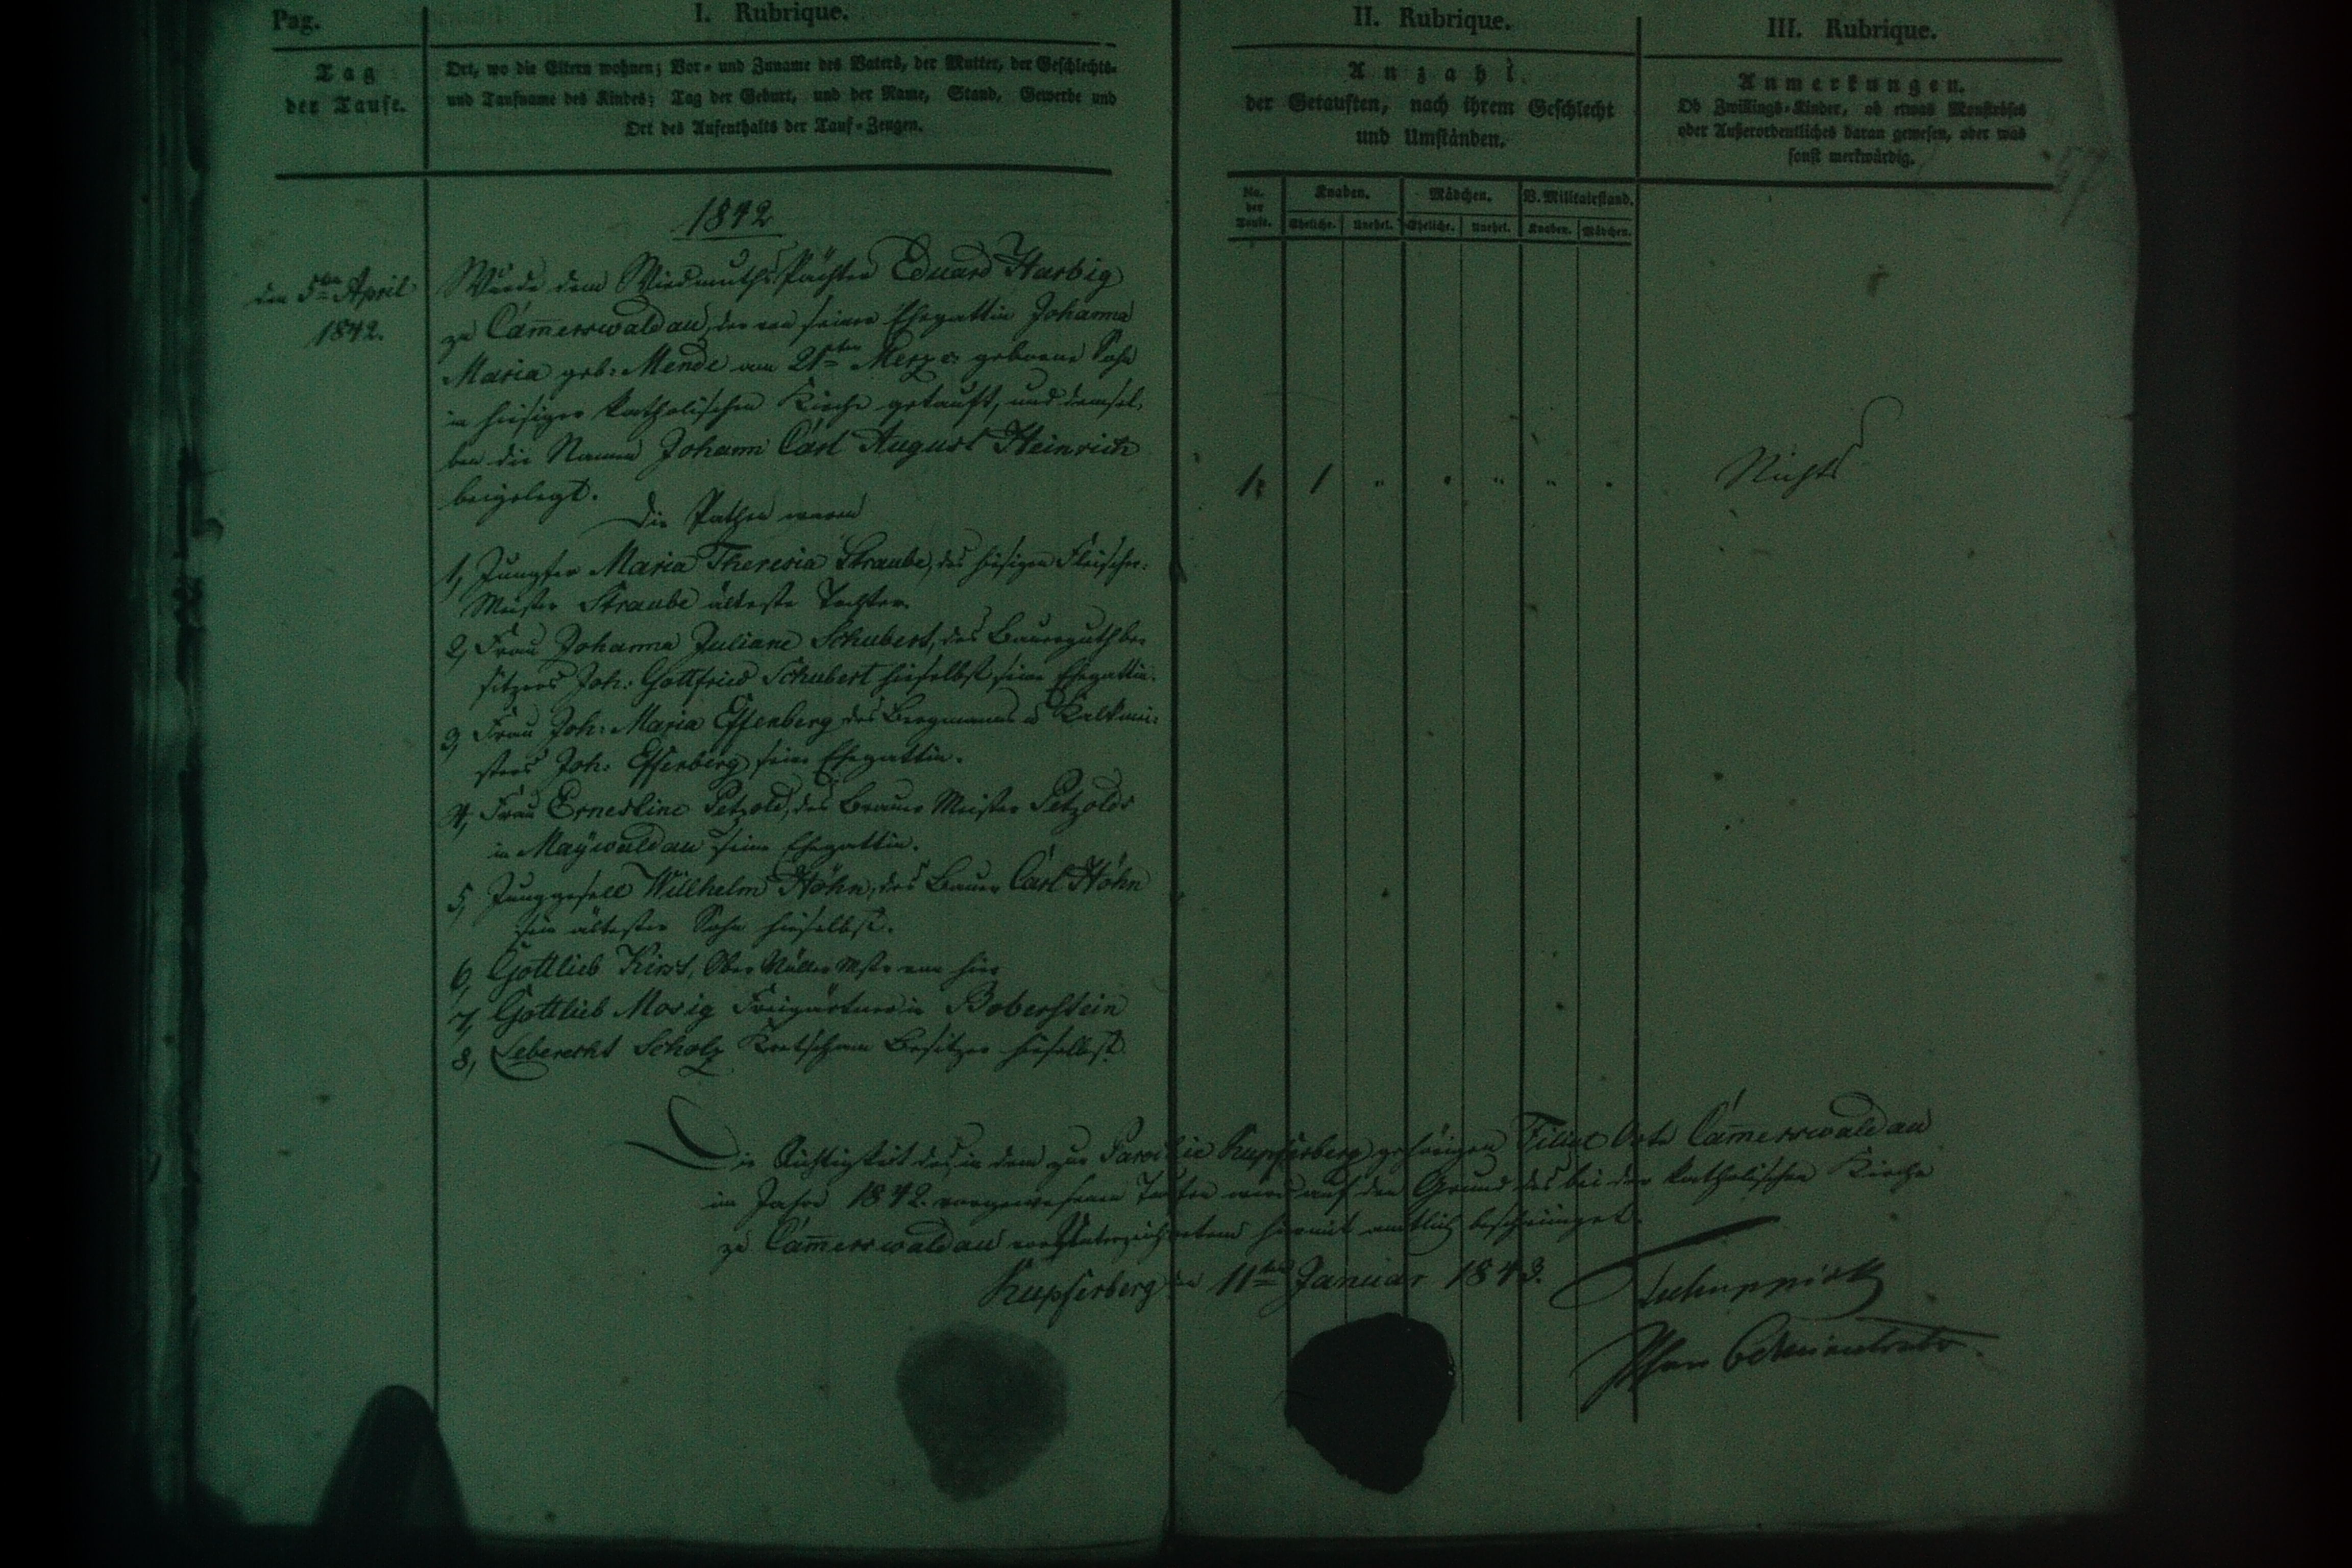 Pag.
I. Rubrique.
II. Rubrique.
III. Rubrique.
Tag
der Taufe.
Ort, wo die Eltern wohnen; Vor- und Zuname des Vaters, der Mutter, der Geschlechts-
und Taufname des Kindes; Tag der Geburt, und der Name, Stand, Gewerbe und
Ort des Aufenthalts der Tauf-Zeugen.
Anzahl
der Getauften, nach ihrem Geschlecht
und Umständen.
Anmerkungen.
Ob Zwillings-Kinder, ob etwas Monströses
oder Außerordentliches daran gewesen, oder was
sonst merkwürdig.
57
No. der Taufe.
Knaben.
Mädchen.
V. Militairstand.
Eheliche. Unehel. Eheliche. Unehel. Knaben. Mädchen.
1842
den 5ten April
1842.
Wurde dem Wiedmuths Pächter Eduard Harbig
zu Cam̅erswaldau, der von seiner Ehegattin Johanna
Maria geb: Mende am 21ten Merz c: geborene Sohn
in hiesiger katholischen Kirche getauft, und demsel-
ben die Namen Johann Carl August Heinrich
beigelegt.
1. 1 " " " " "
Nichts
Die Pathen waren
1, Jungfer Maria Theresia Straube, des hiesigen Fleischer-
Meister Straube älteste Tochter.
2, Frau Johanna Juliane Schubert, des Bauerguthbe-
sitzers Joh: Gottfried Schubert hieselbst seine Ehegattin.
3, Frau Joh: Maria Effenberg des Bergmanns u Kalkmei-
sters Joh: Effenberg seine Ehegattin.
4, Frau Ernestine Petzold, des Brauer Meister Petzolds
in Maywaldau seine Ehegattin.
5, Junggesell Willhelm Höhn, des Bauer Carl Höhn
sein ältester Sohn hieselbst.
6, Gottlieb Kirst, Ober Müller Mstr von hier
7, Gottlieb Mosig Freigärtner in Boberstein
8, Leberecht Scholz Kretscham Besitzer hieselbst
Die Richtigkeit der, in dem zur Parochie Kupferberg gehörigen Filial Orte Cam̅erswaldau
im Jahre 1842 vorgewesenen Taufen wird auf den Grund des bei der katholischen Kirche
zu Cam̅erswaldau hiermit amtlich bescheiniget.
Kupferberg den 11ten Januar 1843.
Tschuppick
Pfarr Administrator.